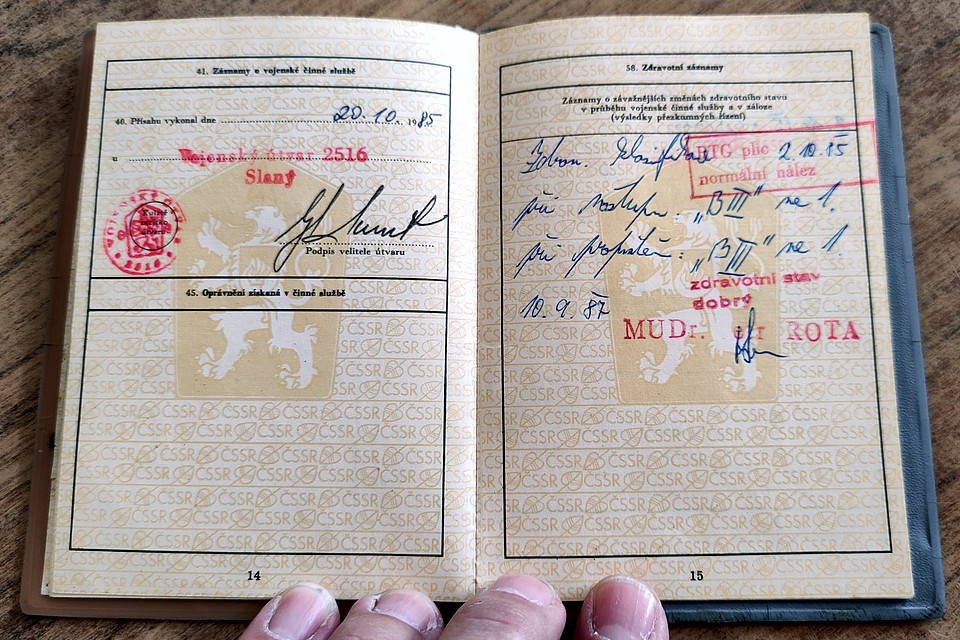 41. Záznamy o vojenské činné službě
40. Přísahu vykonal dne 20.10. 1985
u Vojenský útvar 2516
Slaný
Podpis velitele útvaru
45. Oprávnění získaná v činné službě
14
58. Zdravotní záznamy
Záznamy o závažnějších změnách zdravotního stavu
v průběhu vojenské činné služby a v záloze
(výsledky přezkumných řízení)
RTG plic 2.10.85
normální nález
Zdrav. klasifikace
při nástupu: „BIII" ne 1.
při propuštěn: „BIII" ne 1
zdravotní stav
dobrý
10.9.87
MUDr. ROTA
15
ČSSR